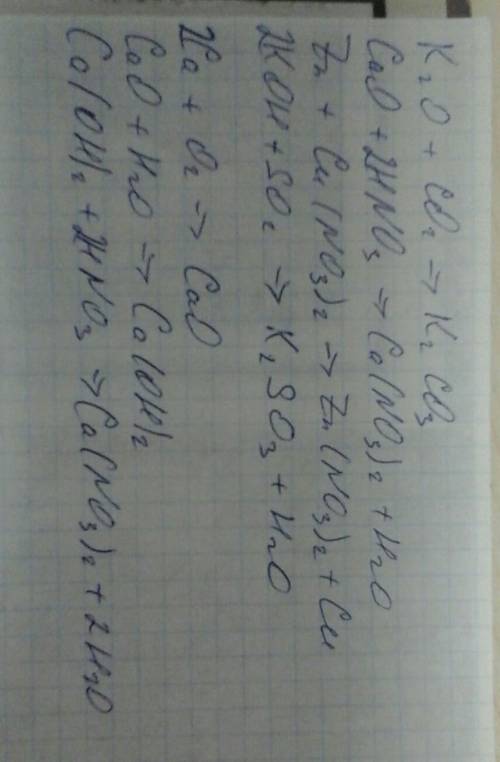 K₂O + CO₂ → K₂CO₃
CaO + 2HNO₃ → Ca(NO₃)₂ + H₂O
Zn + Cu(NO₃)₂ → Zn(NO₃)₂ + Cu
2KOH + SO₂ → K₂SO₃ + H₂O
2Ca + O₂ → CaO
CaO + H₂O → Ca(OH)₂
Ca(OH)₂ + 2HNO₃ → Ca(NO₃)₂ + 2H₂O